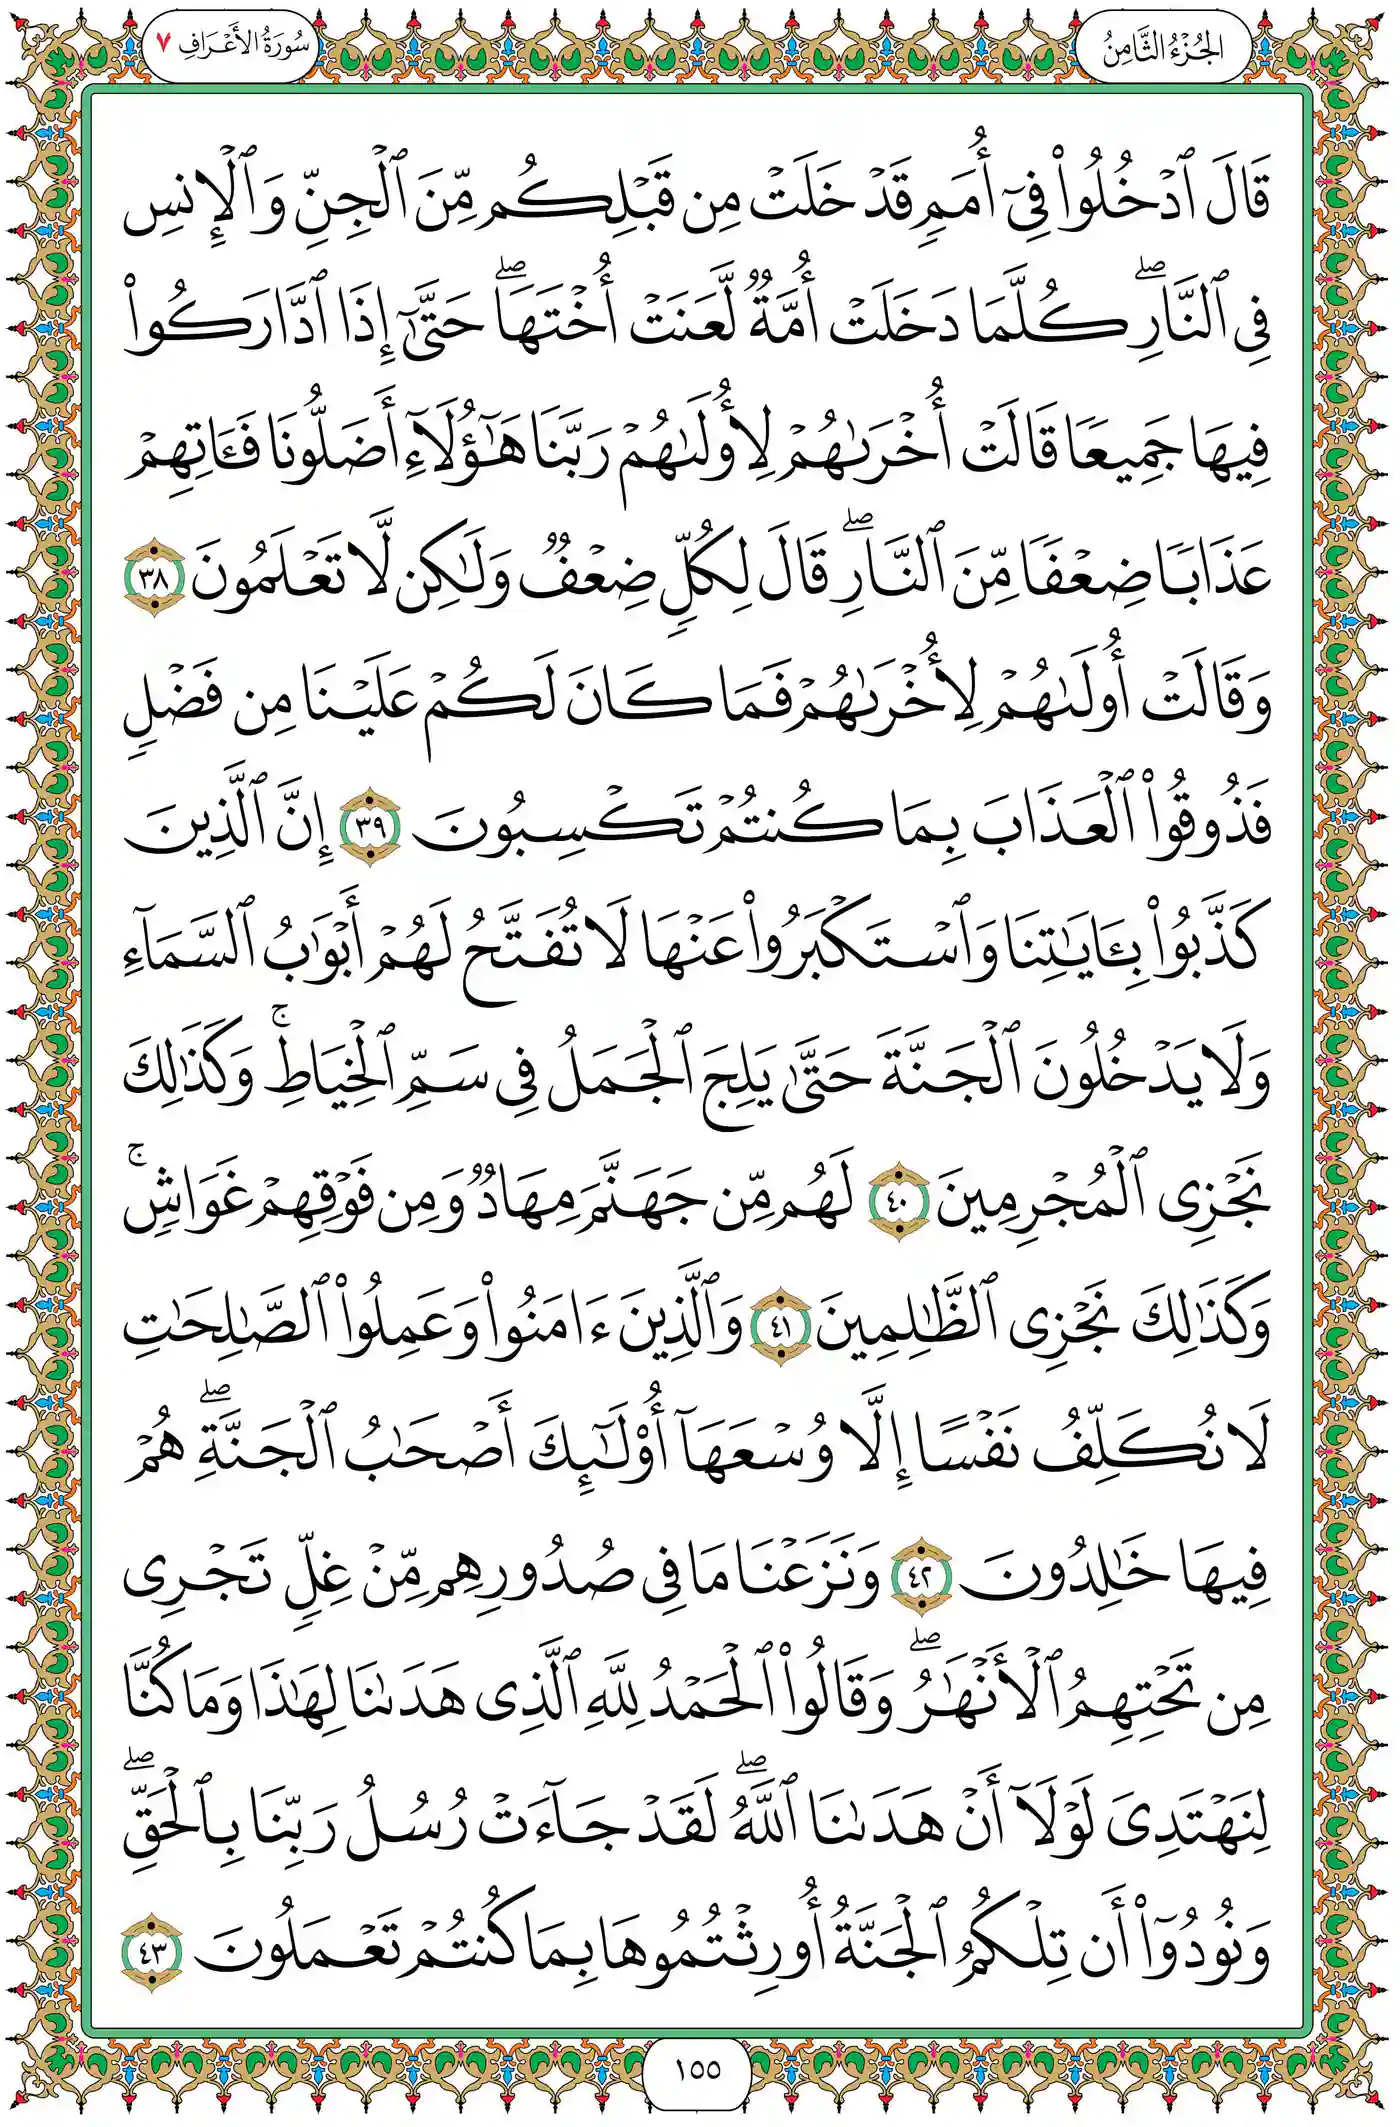 الجُزْءُ الثَّامِنُ
سُورَةُ الأَعْرَافِ ٧
قَالَ ٱدْخُلُوا۟ فِىٓ أُمَمٍ قَدْ خَلَتْ مِن قَبْلِكُم مِّنَ ٱلْجِنِّ وَٱلْإِنسِ
فِى ٱلنَّارِ ۖ كُلَّمَا دَخَلَتْ أُمَّةٌ لَّعَنَتْ أُخْتَهَا ۖ حَتَّىٰٓ إِذَا ٱدَّارَكُوا۟
فِيهَا جَمِيعًا قَالَتْ أُخْرَىٰهُمْ لِأُولَىٰهُمْ رَبَّنَا هَٰٓؤُلَآءِ أَضَلُّونَا فَـَٔاتِهِمْ
عَذَابًا ضِعْفًا مِّنَ ٱلنَّارِ ۖ قَالَ لِكُلٍّ ضِعْفٌ وَلَٰكِن لَّا تَعْلَمُونَ ٣٨
وَقَالَتْ أُولَىٰهُمْ لِأُخْرَىٰهُمْ فَمَا كَانَ لَكُمْ عَلَيْنَا مِن فَضْلٍ
فَذُوقُوا۟ ٱلْعَذَابَ بِمَا كُنتُمْ تَكْسِبُونَ ٣٩ إِنَّ ٱلَّذِينَ
كَذَّبُوا۟ بِـَٔايَٰتِنَا وَٱسْتَكْبَرُوا۟ عَنْهَا لَا تُفَتَّحُ لَهُمْ أَبْوَٰبُ ٱلسَّمَآءِ
وَلَا يَدْخُلُونَ ٱلْجَنَّةَ حَتَّىٰ يَلِجَ ٱلْجَمَلُ فِى سَمِّ ٱلْخِيَاطِ ۚ وَكَذَٰلِكَ
نَجْزِى ٱلْمُجْرِمِينَ ٤٠ لَهُم مِّن جَهَنَّمَ مِهَادٌ وَمِن فَوْقِهِمْ غَوَاشٍ ۚ
وَكَذَٰلِكَ نَجْزِى ٱلظَّٰلِمِينَ ٤١ وَٱلَّذِينَ ءَامَنُوا۟ وَعَمِلُوا۟ ٱلصَّٰلِحَٰتِ
لَا نُكَلِّفُ نَفْسًا إِلَّا وُسْعَهَآ أُو۟لَٰٓئِكَ أَصْحَٰبُ ٱلْجَنَّةِ ۖ هُمْ
فِيهَا خَٰلِدُونَ ٤٢ وَنَزَعْنَا مَا فِى صُدُورِهِم مِّنْ غِلٍّ تَجْرِى
مِن تَحْتِهِمُ ٱلْأَنْهَٰرُ ۖ وَقَالُوا۟ ٱلْحَمْدُ لِلَّهِ ٱلَّذِى هَدَىٰنَا لِهَٰذَا وَمَا كُنَّا
لِنَهْتَدِىَ لَوْلَآ أَنْ هَدَىٰنَا ٱللَّهُ ۖ لَقَدْ جَآءَتْ رُسُلُ رَبِّنَا بِٱلْحَقِّ ۖ
وَنُودُوٓا۟ أَن تِلْكُمُ ٱلْجَنَّةُ أُورِثْتُمُوهَا بِمَا كُنتُمْ تَعْمَلُونَ ٤٣
١٥٥